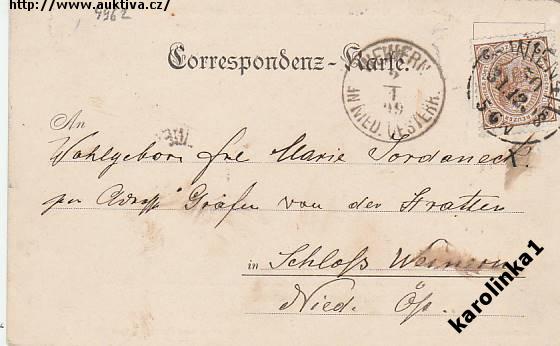 http://www.auktiva.cz/
4962
Correspondenz-Karte.
WEIERN
2
1
99
IN NIED. OESTERR.
WIEN
31.12.98
5-6 N
An
Wohlgeboren Fre Marie Jordaneck
per Adresse Grafen von der Stratten
in Schloss
Nied. Öst.
karolinka1